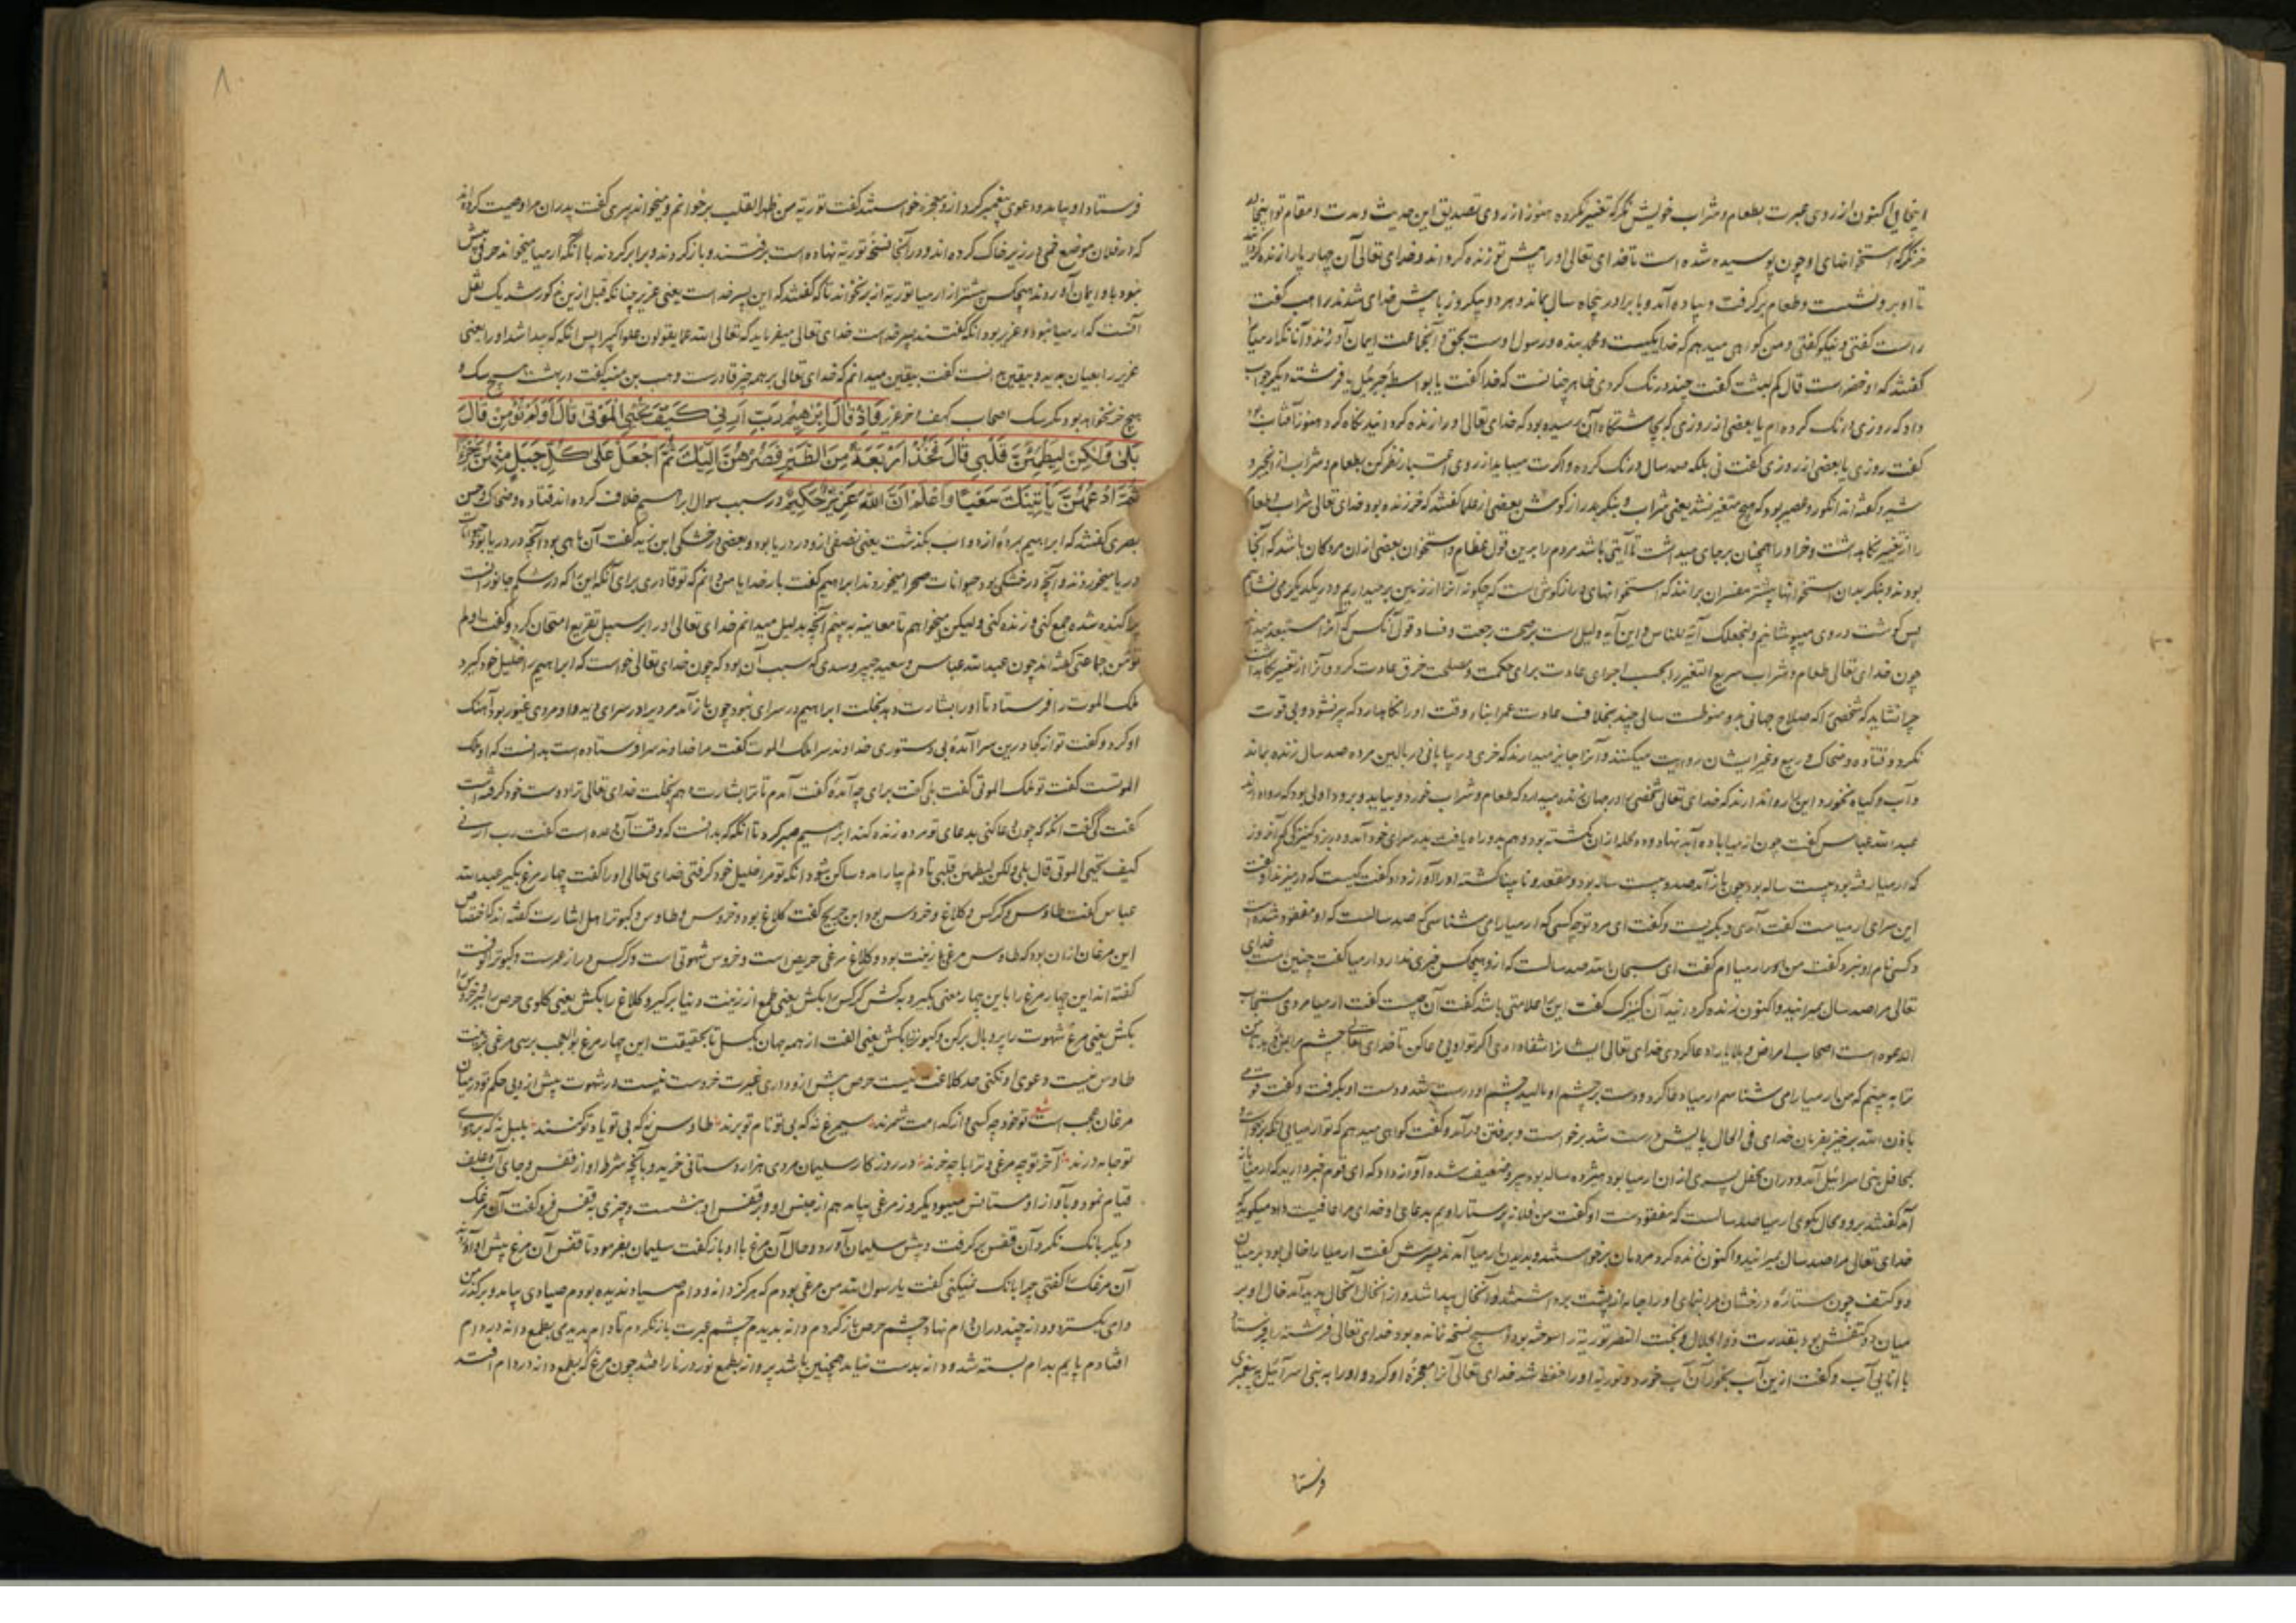 اینجایی اکنون از روی عبرت بطعام و شراب خویش نگر که تغییر نکرده هنوز از روی تصدیق این حدیث و مدت و مقام تو اینجا
خر نگر که استخوانهای او چون پوسیده شده است تا خدای تعالی او را پیش تو زنده کرد اند و خدای تعالی آن چهارپا را زنده
تا او برو نشست و طعام برگرفت و بیاده آمد و با برادر پنجاه سال بماند و هر دو بیکروز با پیش خدای شدند راهب گفت
راست گفتی و نیکو گفتی و من گواهی میدهم که خدا یکیست و محمد بنده و رسول اوست بحق و آنجماعت ایمان آوردند و آنانکه ارمیا
گفتند که او خضر است قال کم لبثت گفت چند درنگ کردی ظاهر چنانست که خدا گفت یا بواسطه جبرئیل یا فرشته دیگر جواب
داد که روزی درنگ کرده‌ام یا بعضی از روزی که بچاشتگاه آن رسیده بود که خدای تعالی او را زنده کرد انید نگاه کرد هنوز آفتاب بود
گفت روزی یا بعضی از روزی گفت نی بلکه صد سال درنگ کرده و اگرت میباید از روی اعتبار نظر کن بطعام و شراب از انجیر و
شیر و گفته‌اند انگور و عصیر بود که هیچ متغیر نشد یعنی شراب و بنگر بدراز گوش بعضی از علما گفتند که خر زنده بود خدای تعالی شراب و طعام
را از تغییر نگاهداشت و خر او را همچنان برجای میداشت تا آیتی باشد مردم را برین قول عظام و استخوان بعضی از ان مردگان باشد که آنجا
بودند و بنگر بدان استخوانها بیشتر مفسران برانند که استخوانهای دراز گوش است که چگونه آنرا از زمین برمیداریم و در یکدیگر می نشانیم
پس گوشت در وی میپوشانیم و لنجعلک آیة للناس و این آیه دلیل است بر صحت رجعت و فساد قول آنکس که آنرا مستبعد میداند
چون خدای تعالی طعام و شراب سریع التغیر را بحسب اجرای عادت برای حکمت و مصلحت خرق عادت کرد و آنرا از تغییر نگاهداشت
چرا نشاید که شخصی را که صلاح جهانی بدو منوطست سالی چند بخلاف عادت عمر ابناء وقت او را نگاه دارد که پیر نشود و بی قوت
نگردد و قتاده و ضحاک و ربیع و غیر ایشان روایت میکنند و آنرا جایز میدارند که خری در بیابانی در بالین مرده صد سال زنده بماند
و آب و گیاه نخورد این را روا ندارند که خدای تعالی شخصی را در جهان زنده میدارد که طعام و شراب خورد و بیاید و برود اولی بود که روا دارند
عبدالله عباس گفت چون ارمیا با ده آبه نهاد و ده گله از ان گشته بود و هم بدو راه یافت بدر سرای خود آمد و در بزد کنیزکی آخر روز
که ارمیا رفته بود بیست ساله بود چون باز آمد صد و بیست ساله بود و مقعد و نابینا گشته او را آواز داد گفت کیست که در میزند او گفت
این سرای ارمیاست گفت آری و بگریست و گفت ای مرد تو چه کسی که ارمیا را می شناسی که صد سالست که او مفقود شده است
و کسی نام او نبرد گفت من ارمیا ام گفت ای سبحان الله صد سالست که از و هیچکس خبری ندارد ارمیا گفت چنین است خدای
تعالی مرا صد سال بمیرانید و اکنون زنده کرد انید آن کنیزک گفت این را علامتی باشد گفت آن چیست گفت ارمیا مردی مستجاب
الدعوه است اصحاب امراض و بلایا را دعا کردی خدای تعالی ایشانرا شفا دادی اگر تو اویی دعا کن تا خدای تعالی چشم مرا روشن کند
تا به بینم که من ارمیا را می شناسم ارمیا دعا کرد و دست بر چشم او مالید چشم او درست شد و دست او بگرفت و گفت قومی
باذن الله برخیز بفرمان خدای فی الحال پایش درست شد برخاست و برفتن درآمد و گفت گواهی میدهم که تو ارمیایی آنگه برخاست و
بمحافل بنی اسرائیل آمد و در ان محفل پسری از ان ارمیا بود هژده ساله بود پیر و ضعیف شده آواز داد که ای قوم خبر دارید که ارمیا باز
آمد گفتند برو و محال مگوی ارمیا صد سالست که مفقود است او گفت من فلانه پرستار اویم بدعای او خدای مرا عافیت داد و میگوید
خدای تعالی مرا صد سال بمیرانید و اکنون زنده کرد مردمان برخاستند و بدیدن ارمیا آمدند پسرش گفت ارمیا را خالی بود بر میان
دو کتف چون ستاره درخشان مرا بنمای او را جامه از پشت برداشتند و آن خال پیدا شد و از آنخال آنحال پدید آمد خال او بر
میان دو کتفش بود بقدرت ذوالجلال و بخت النصر توریة را سوخته بود و هیچ نسخه نمانده بود خدای تعالی فرشته را فرستاد
با انایی آب و گفت ازین آب بخور آن آب خورد و توریة او را حفظ شد خدای تعالی آنرا معجزه او کرد و او را به بنی اسرائیل به پیغمبری
فرستا
۸۰
فرستاد او بیامد و دعوی پیغمبر کرد ازو معجزه خواستند گفت توریة من ظهر القلب برخوانم و میخواند پیری گفت پدران مرا وصیت کرده‌اند
که در فلان موضع خمی در زیر خاک کرده‌اند و در آنجا نسخه توریة نهاده است برفتند و باز کردند و برابر کردند با آنکه ارمیا میخواند حرفی بیش
نبود باو ایمان آوردند هیچکس پیشتر از ارمیا توریة از بر نخواند تا گفتند که این پسر خدا است یعنی عزیر چنانکه قبل ازین مذکور شد یک نقل
آنست که ارمیا نبود و عزیر بود آنکه گفتند پسر خداست خدای تعالی میفرماید که تعالی الله عما یقولون علوا کبیرا پس آنگه که پیدا شد او را یعنی
عزیر را بعیان بدید و بیقین دانست گفت بیقین میدانم که خدای تعالی بر همه چیز قادرست وهب بن منبه گفت در بهشت هیچ سگ و
هیچ خر نخواهد بود مگر سگ اصحاب کهف و خر عزیر وَاِذْ قَالَ اِبْرٰهِیمُ رَبِّ اَرِنِی کَیْفَ تُحْیِی الْمَوْتٰی قَالَ اَوَلَمْ تُؤْمِنْ قَالَ
بَلٰی وَلٰکِنْ لِیَطْمَئِنَّ قَلْبِی قَالَ فَخُذْ اَرْبَعَةً مِنَ الطَّیْرِ فَصُرْهُنَّ اِلَیْکَ ثُمَّ اجْعَلْ عَلٰی کُلِّ جَبَلٍ مِنْهُنَّ جُزْءًا
ثُمَّ ادْعُهُنَّ یَأْتِینَکَ سَعْیًا وَاعْلَمْ اَنَّ اللّٰهَ عَزِیزٌ حَکِیمٌ در سبب سوال ابراهیم خلاف کرده‌اند قتاده و ضحاک و حسن
بصری گفتند که ابراهیم بمرده از دواب بگذشت یعنی نصفی ازو در دریا بود و بعضی در خشکی ابن زید گفت آن ماهی بود آنچه در دریا بود حیوانات
دریا میخوردند و آنچه در خشکی بود حیوانات صحرا میخوردند ابراهیم گفت بار خدایا من دانم که تو قادری برای آنکه این را که در شکم جانورانست
پراکنده شده جمع کنی و زنده کنی و لیکن میخواهم تا معاینه به بینم آنچه بدلیل میدانم خدای تعالی او را بر سبیل تقریع امتحان کرد و گفت اولم
تؤمن جماعتی گفته‌اند چون عبدالله عباس و سعید جبیر و سدی که سبب آن بود که چون خدای تعالی خواست که ابراهیم را خلیل خود گیرد
ملک الموت را فرستاد تا او را بشارت دهد بخلت ابراهیم در سرای نبود چون باز آمد مردی را در سرای دید و او مردی غیور بود آهنگ
او کرد و گفت تو از کجا درین سرا آمده بی دستوری خداوند سرا ملک الموت گفت مرا خداوند سرا فرستاده است بدانست که او ملک
الموتست گفت تو ملک الموتی گفت بلی گفت برای چه آمده گفت آمدم تا ترا بشارت دهم بخلت خدای تعالی ترا دوست خود گرفته است
گفت کی گفت آنگه که چون دعا کنی بدعای تو مرده زنده کند ابراهیم صبر کرد تا آنگه که بدانست که وقت آن آمده است گفت رب ارنی
کیف تحیی الموتی قال بلی ولکن لیطمئن قلبی تا دلم بیارامد و ساکن شود آنکه تو مرا خلیل خود گرفتی خدای تعالی او را گفت چهار مرغ بگیر عبدالله
عباس گفت طاوس و کرکس و کلاغ و خروس بود ابن جریج گفت کلاغ بود و خروس و طاوس و کبوتر اهل اشارت گفته‌اند که اختصاص
این مرغان از ان بود که طاوس مرغی با زینت بود و کلاغ مرغی حریص است و خروس شهوتی است و کرکس دراز عمرست و کبوتر الوفست
گفته‌اند این چهار مرغ را باین چهار معنی بگیر و بکش کرکس را بکش یعنی طمع از زینت دنیا برگیر و کلاغ را بکش یعنی گلوی حرص را ببر خروس را
بکش یعنی مرغ شهوت را پر و بال برکن و کبوتر را بکش یعنی الفت از همه جهان بگسل تا بحقیقت این چهار مرغ بوالعجب برسی مرغی بزینت
طاوس نیست دعوی او نکنی حد کلاغت نیست حرص بیش ازو داری غیرت خروست نیست در شهوت بیش از وی حکم تو در میان
مرغان عجب است شعر تو خود چه کسی و از کدامت شمرند سیمرغ نه که بی تو نام تو برند طاوس نه که بی تو یاد تو کنند بلبل نه که بر هوای
تو جامه درند آخر تو چه مرغی و ترا با چه خرند در روزگار سلیمان مردی هزار دستانی خرید و بآنچه شرط او از قفس و جای آب و علف
قیام نمود و بآواز او ستانس میبود یکروز مرغی بیامد هم از جنس او و بر قفس او بنشست و چیزی به قفس فرو گفت آن مرغک
دیگر بانگ نکرد آن قفس برگرفت و پیش سلیمان آورد و حال آن مرغ با او باز گفت سلیمان بفرمود تا قفس آن مرغ پیش او آوردند
آن مرغک را گفتی چرا بانگ نمیکنی گفت یا رسول الله من مرغی بودم که هرگز دانه و دام صیاد ندیده بودم صیادی بیامد و بر گذر من
دامی بگسترد و دانه چند در ان دام نهاد چشم حرص باز کردم دانه بدیدم چشم عبرت باز نکردم تا دام بدیدمی بطمع دانه در دام
افتادم پایم بدام بسته شد و دانه بدست نیامد همچنین باشد پروانه بطمع نور در نار افتد چون مرغ که بطمع دانه در دام افتد